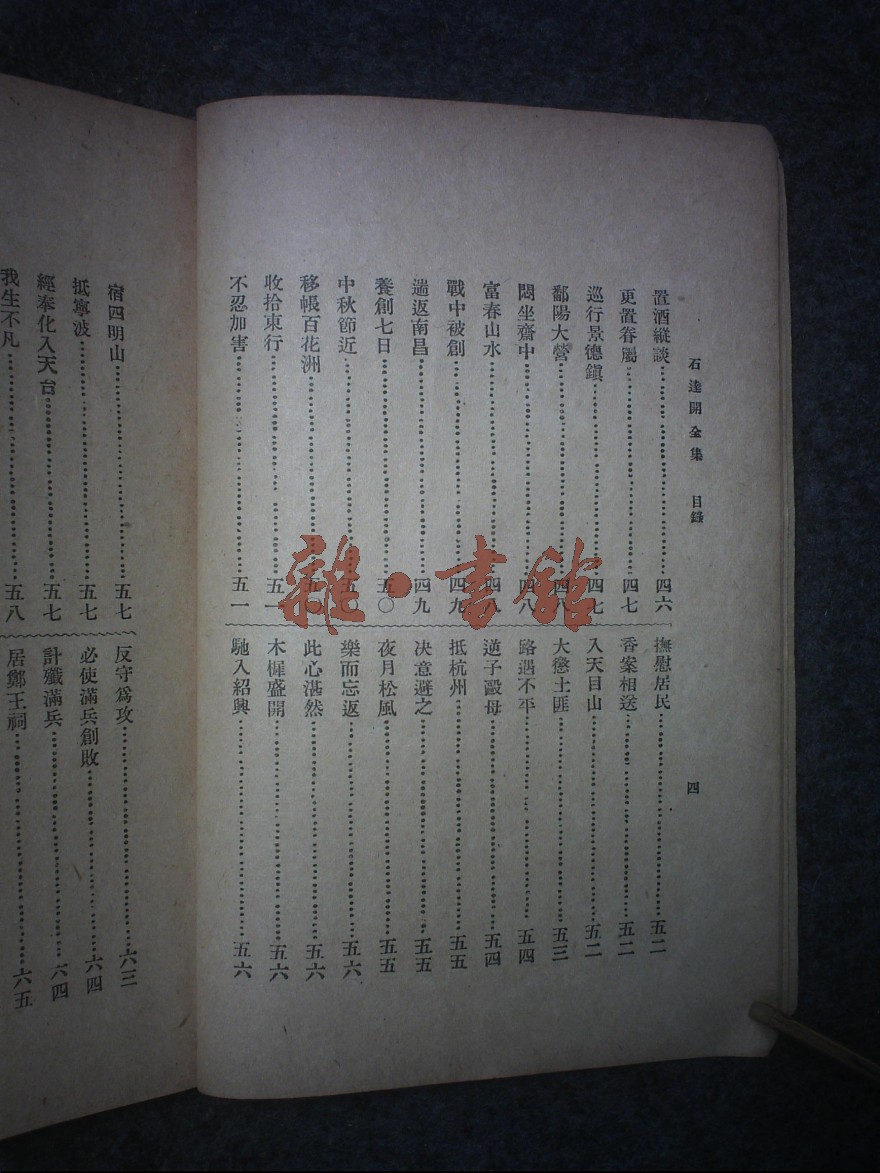 石達開全集　目錄
四
置酒縱談…………四六
更置眷屬…………四七
巡行景德鎮…………四七
鄱陽大營…………四八
悶坐齋中…………四八
富春山水…………四八
戰中被創…………四九
遄返南昌…………四九
養創七日…………五〇
中秋節近…………五〇
移帳百花洲…………五〇
收拾東行…………五一
不忍加害…………五一
撫慰居民…………五二
香案相送…………五二
入天目山…………五二
大懲土匪…………五三
路遇不平…………五四
逆子毆母…………五四
抵杭州…………五五
決意避之…………五五
夜月松風…………五五
樂而忘返…………五六
此心湛然…………五六
木樨盛開…………五六
馳入紹興…………五六
宿四明山…………五七
抵寧波…………五七
經奉化入天台…………五七
我生不凡…………五八
反守爲攻…………六三
必使滿兵創敗…………六四
計殲滿兵…………六四
居鄭王祠…………六五
雜·書館